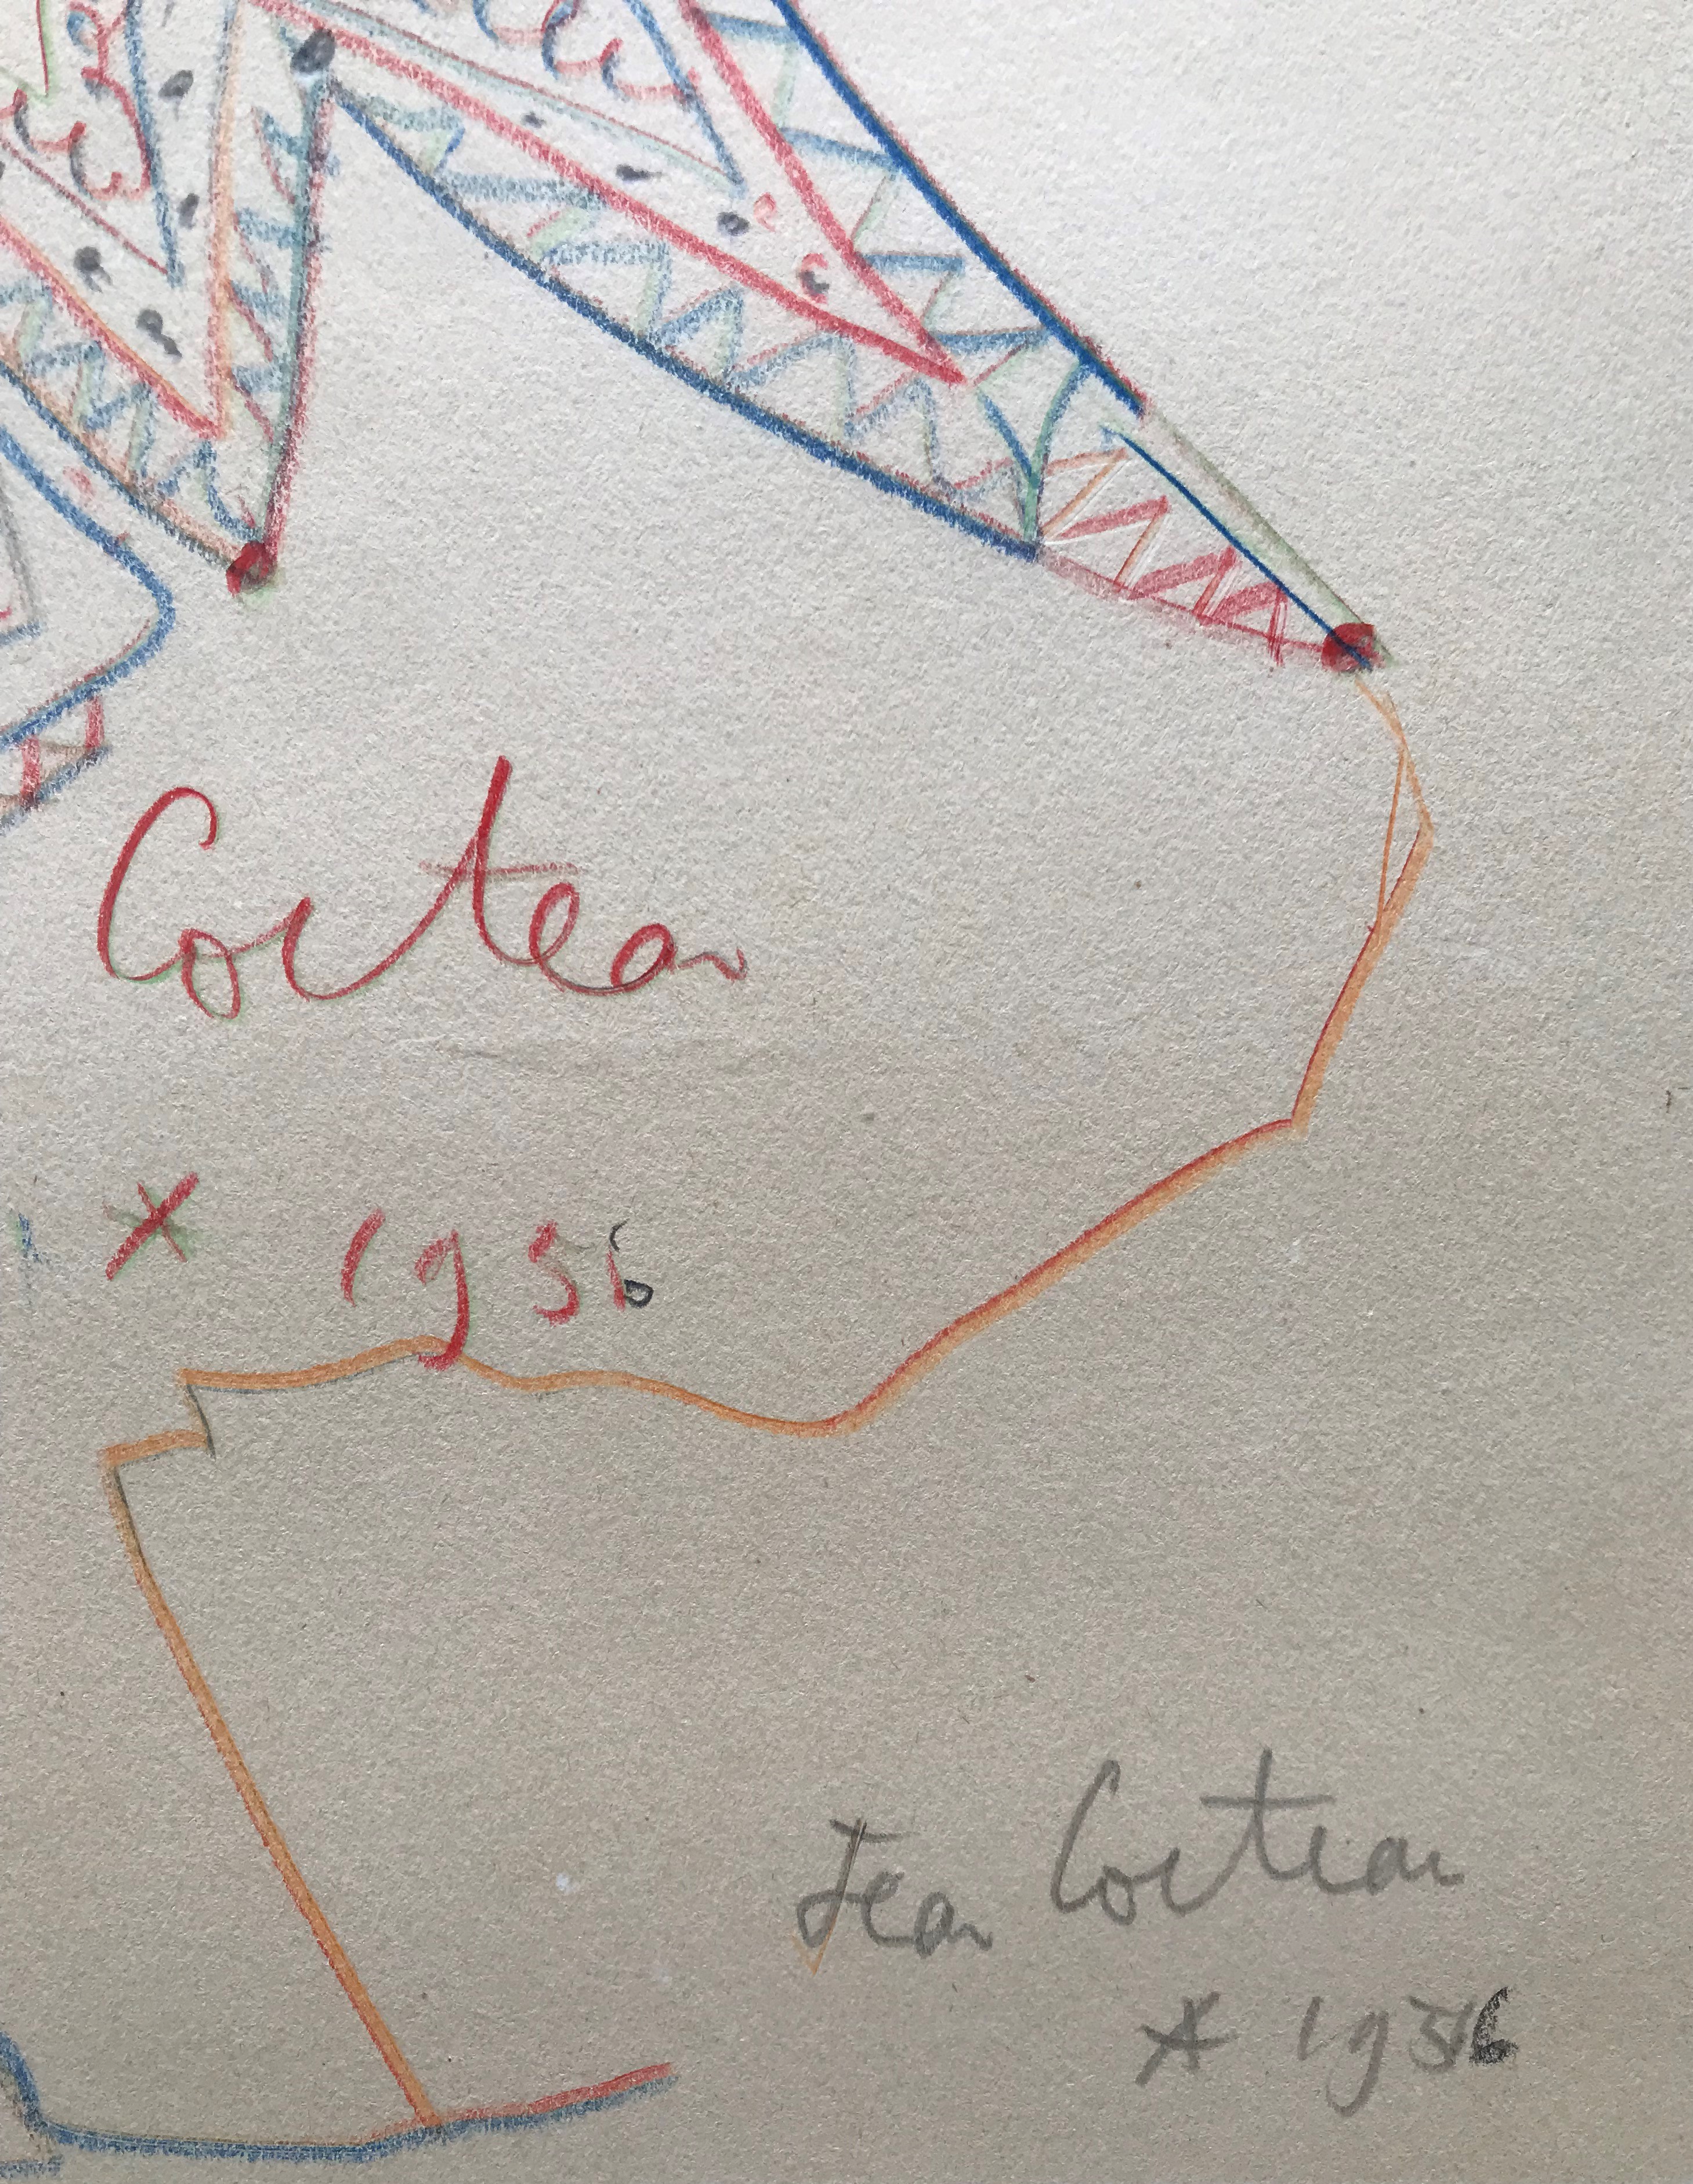 Cocteau
* 1956
Jean Cocteau
* 1956